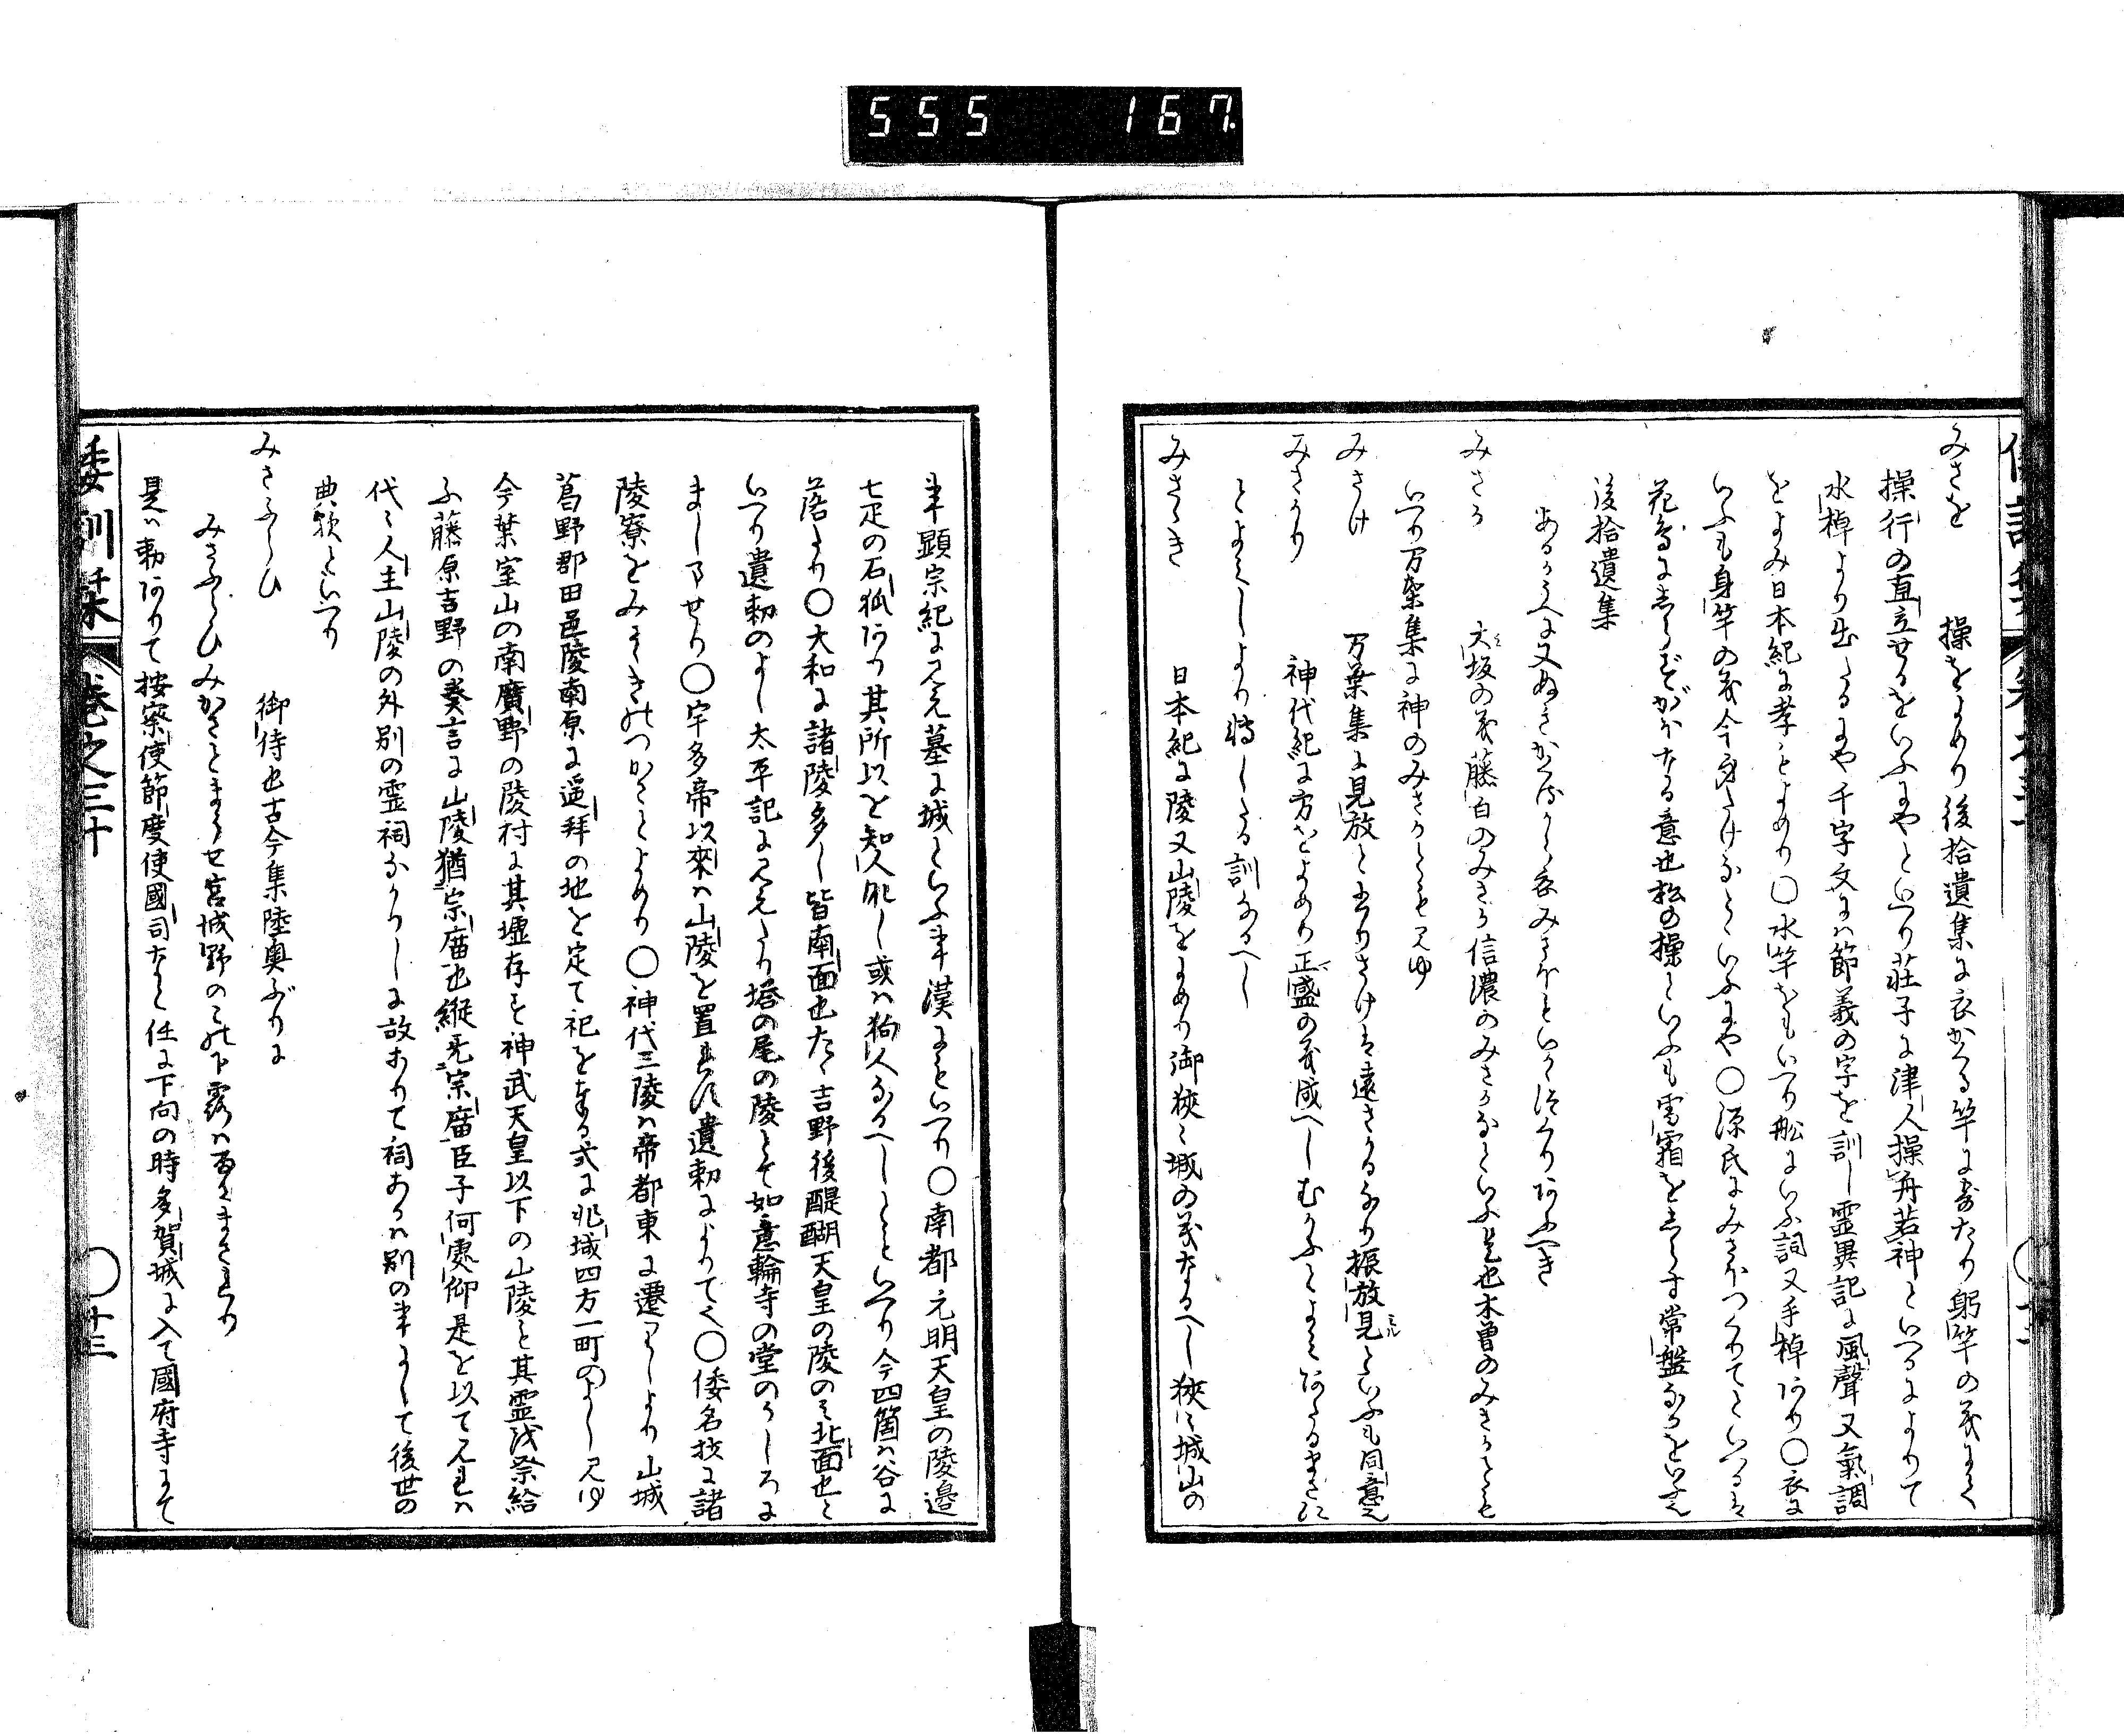 555 167.
みさを 操をよめり後拾遺集に衣かくる竿に寄たり躬竿の義にて
操行の直立せるをいふにやといへり荘子に津人操舟若神といへるによりて
水棹より出たるにや千字文には節義の字を訓し霊異記に風聲又氣調
をよみ日本紀に孝々とよめり○水竿をもいへり舩にいふ詞又手棹あり○衣に
いふも身竿の義今身たけなといふにや○源氏にみさほつくりてといへるは
花鳥にしらずがほなる意也松の操といふも雪霜をしらす常盤なるをいふ也
後拾遺集
みさか 大坂の義藤白のみさか信濃のみさかなといふ是也木曽のみさかとも
いへり万葉集に神のみさかとも見ゆ
みさけ 万葉集に見放と書りさけは遠さくるなり振放見といふも同意也
みさかり 神代紀に方をよめり正盛の義成へしむかふとよみあたるまさに
とよみしより轉したる訓なるへし
みさゝき 日本紀に陵又山陵をよめり御狭々城の義なるへし狭々城山の
事顕宗紀に見え墓に城といふ事漢にもいへり○南都元明天皇の陵邊
七疋の石狐あり其所以を知人なし或は狗人なるへしともいへり今四箇は谷に
落たり○大和に諸陵多し皆南面也たゝ吉野後醍醐天皇の陵のみ北面也と
いへり遺勅のよし太平記に見えたり塔の尾の陵とて如意輪寺の堂のうしろに
ましませり○宇多帝以來は山陵を置れす遺勅によりて也○倭名抄に諸
陵寮をみさゝきのつかさとよめり○神代三陵は帝都東に遷りしより山城
葛野郡田邑陵南原に遥拜の地を定て祀を奉る式に兆域四方一町のよし見ゆ
今葉室山の南廣野の陵村に其墟存す神武天皇以下の山陵も其霊を祭給
ふ藤原吉野の奏言に山陵猶宗廟也縦无宗廟臣子何處仰是を以て見れは
代々人主山陵の外別の霊祠なかりしに故ありて祠あるは別の事にして後世の
典類といへり
みさふらひ 御侍也古今集陸奥ぶりに
みさふらひみかさとまうせ宮城野のこの下露は雨にまされり
是は勅ありて按察使節度使國司なと任に下向の時多賀城に入て國府寺にて
倭訓栞 巻之三十 ○十三